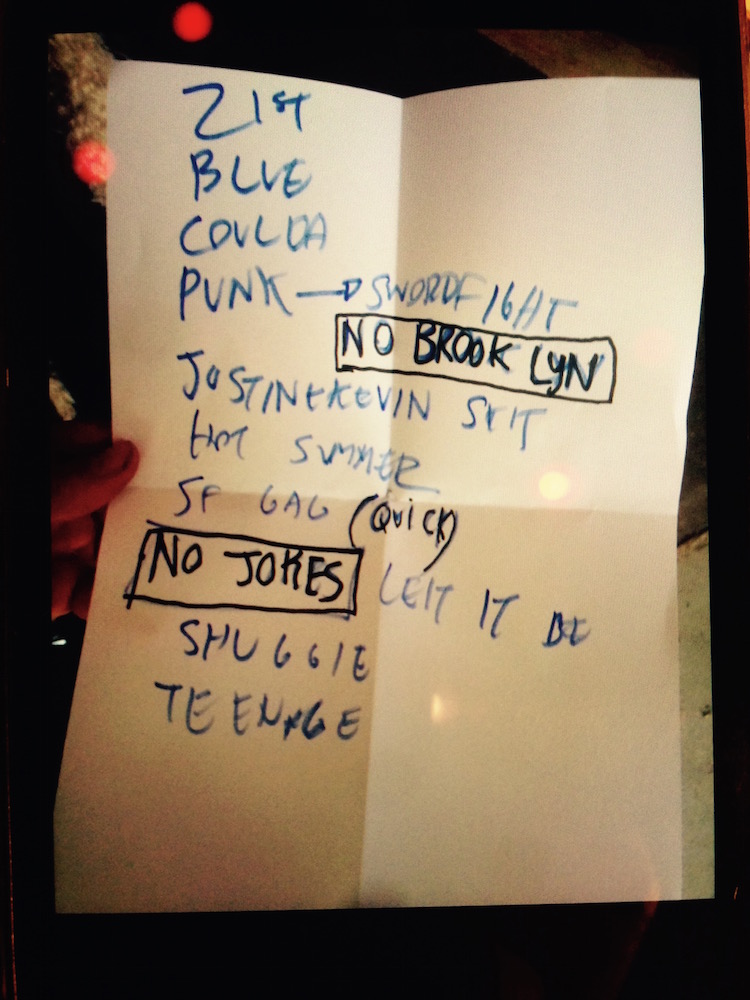 21st
BLUE
COULDA
PUNK → SWORDFIGHT
NO BROOKLYN
JUSTINE KEVIN SKIT
HOT SUMMER
SF GAG (QUICK)
NO JOKES LEIT IT BE
SHUGGIE
TEENAGE